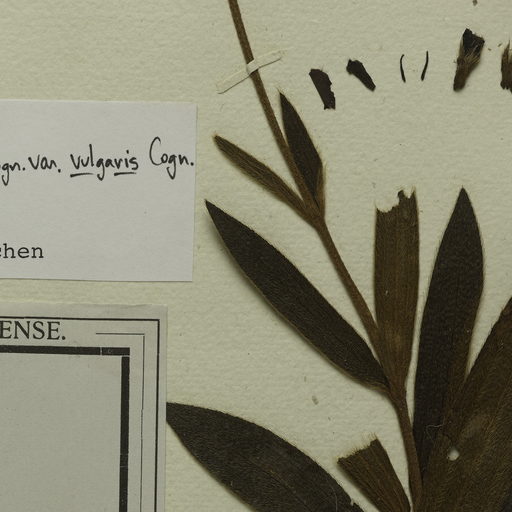 ogn. var. vulgaris Cogn.
chen
ENSE.